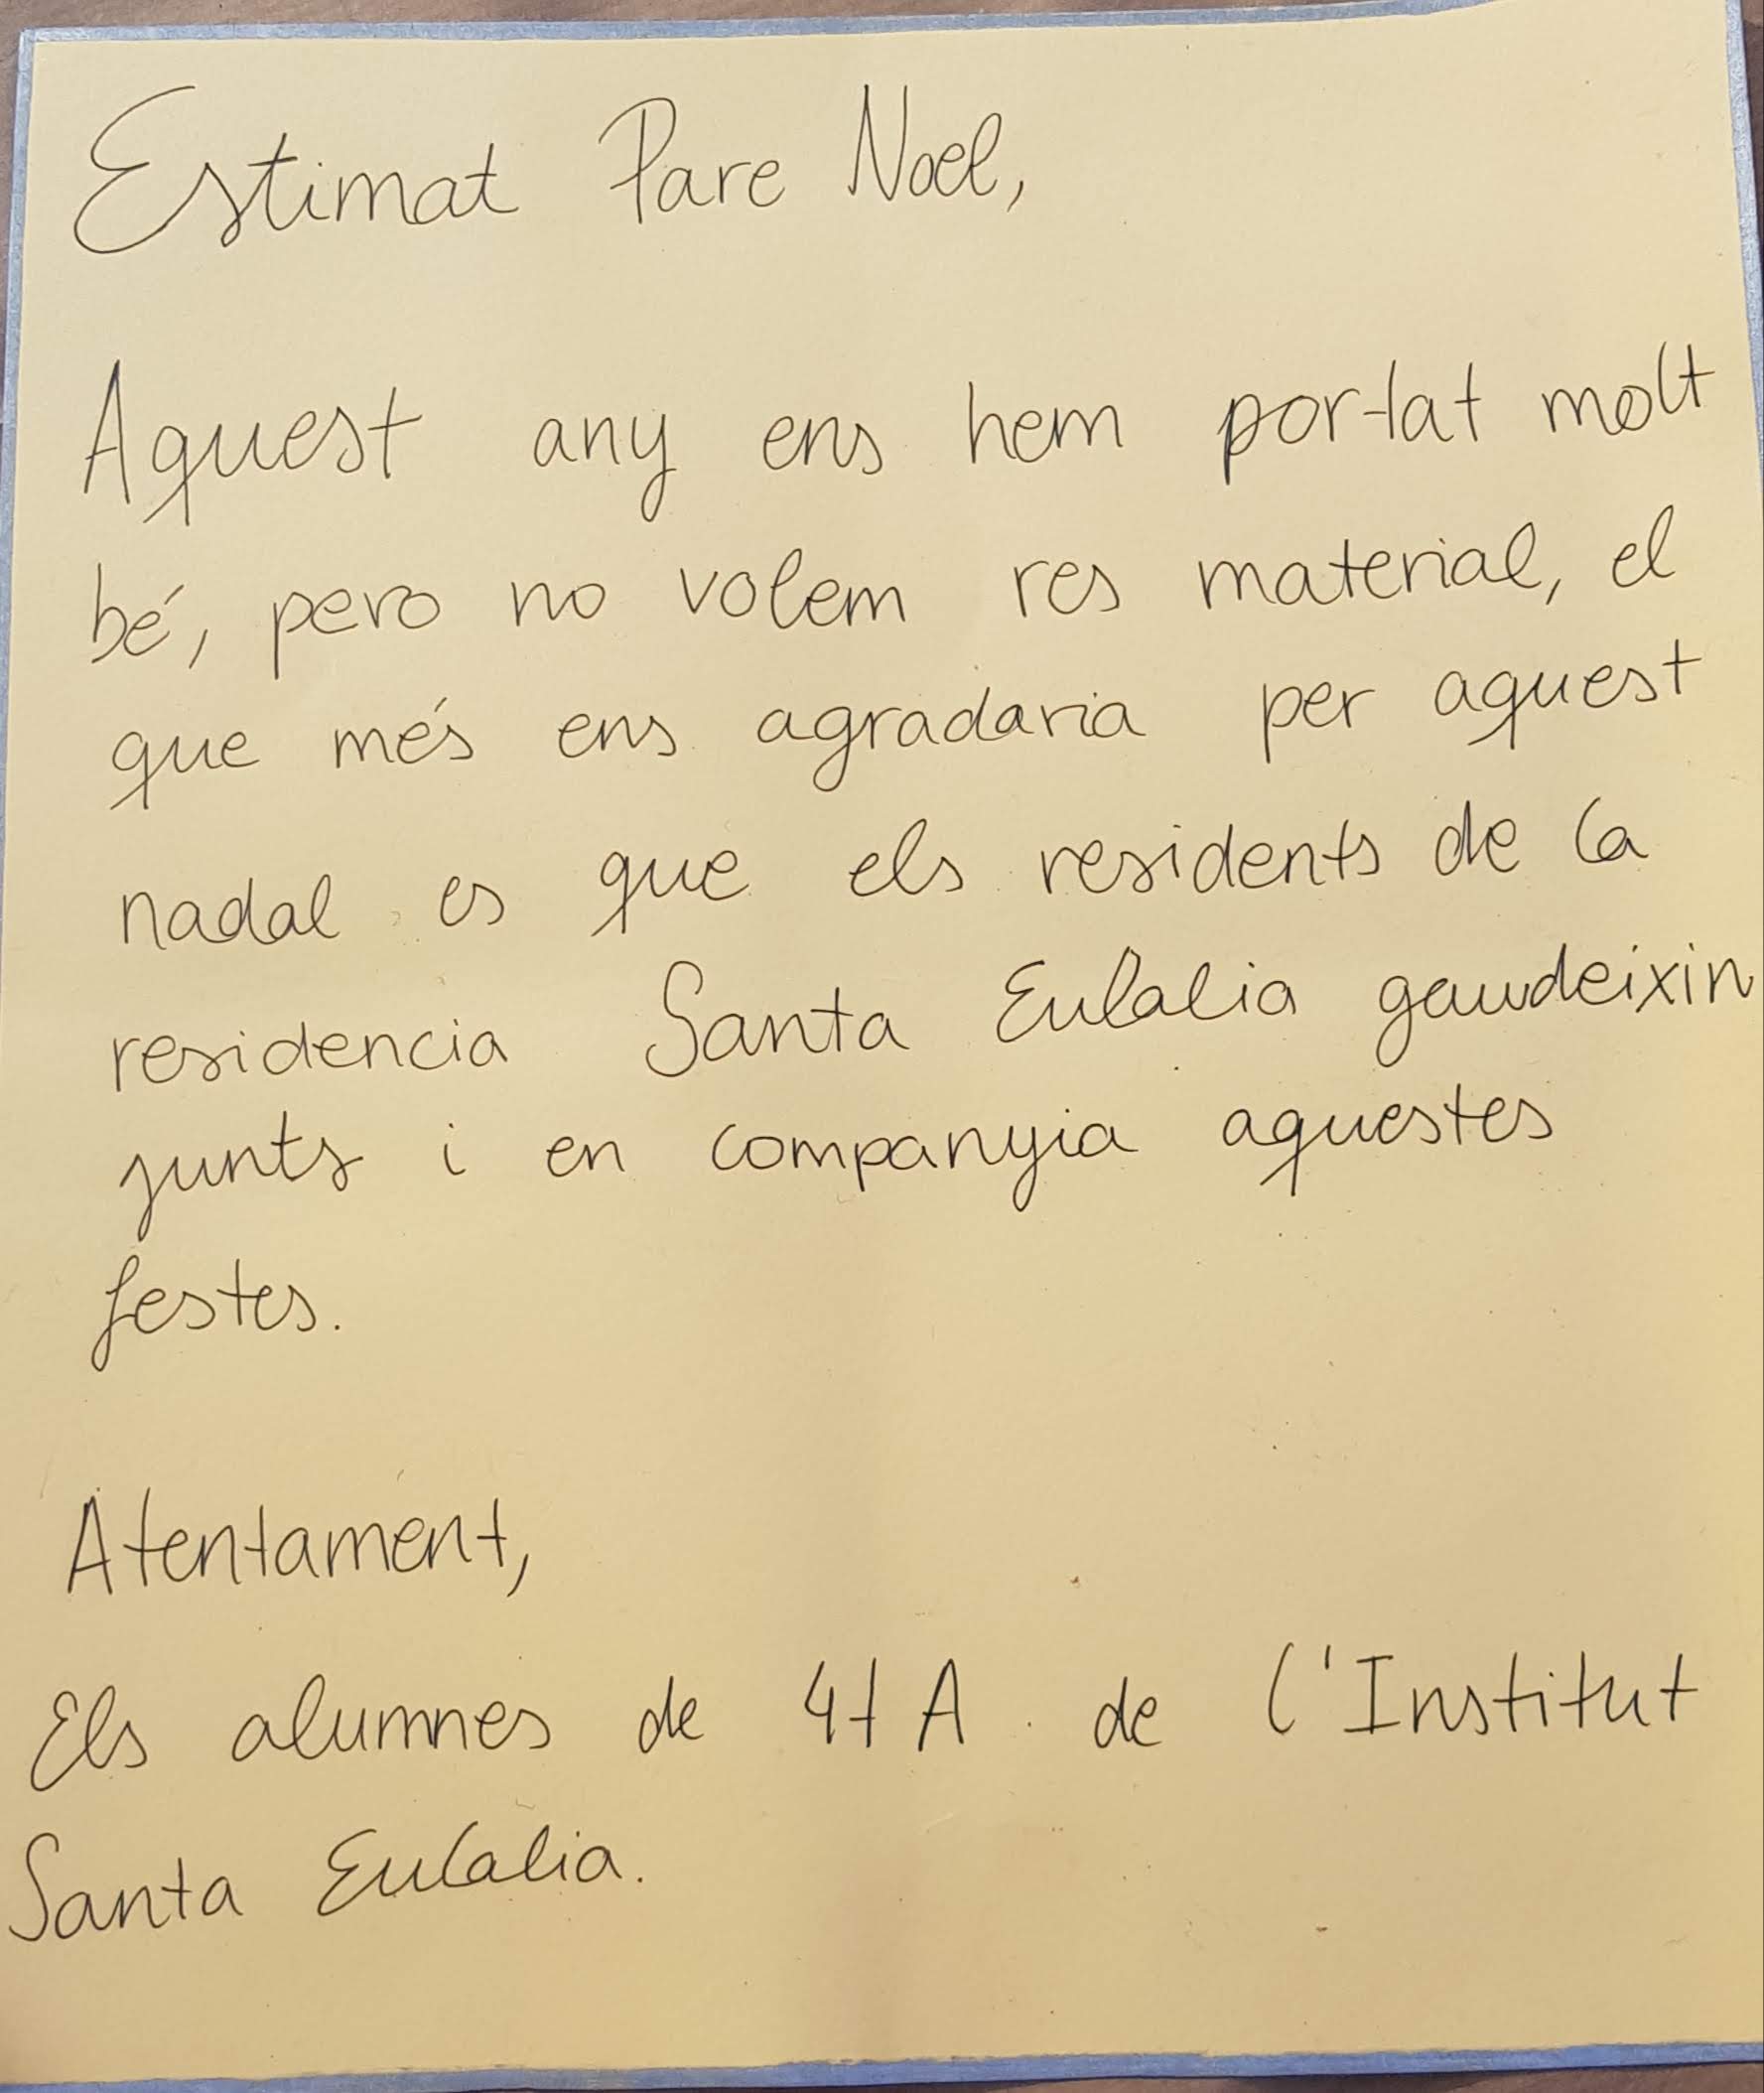 Estimat Pare Noel,
Aquest any ens hem portat molt
bé, pero no volem res material, el
que més ens agradaria per aquest
nadal es que els residents de la
residencia Santa Eulalia gaudeixin
junts i en companyia aquestes
festes.
Atentament,
Els alumnes de 4t A de l'Institut
Santa Eulalia.